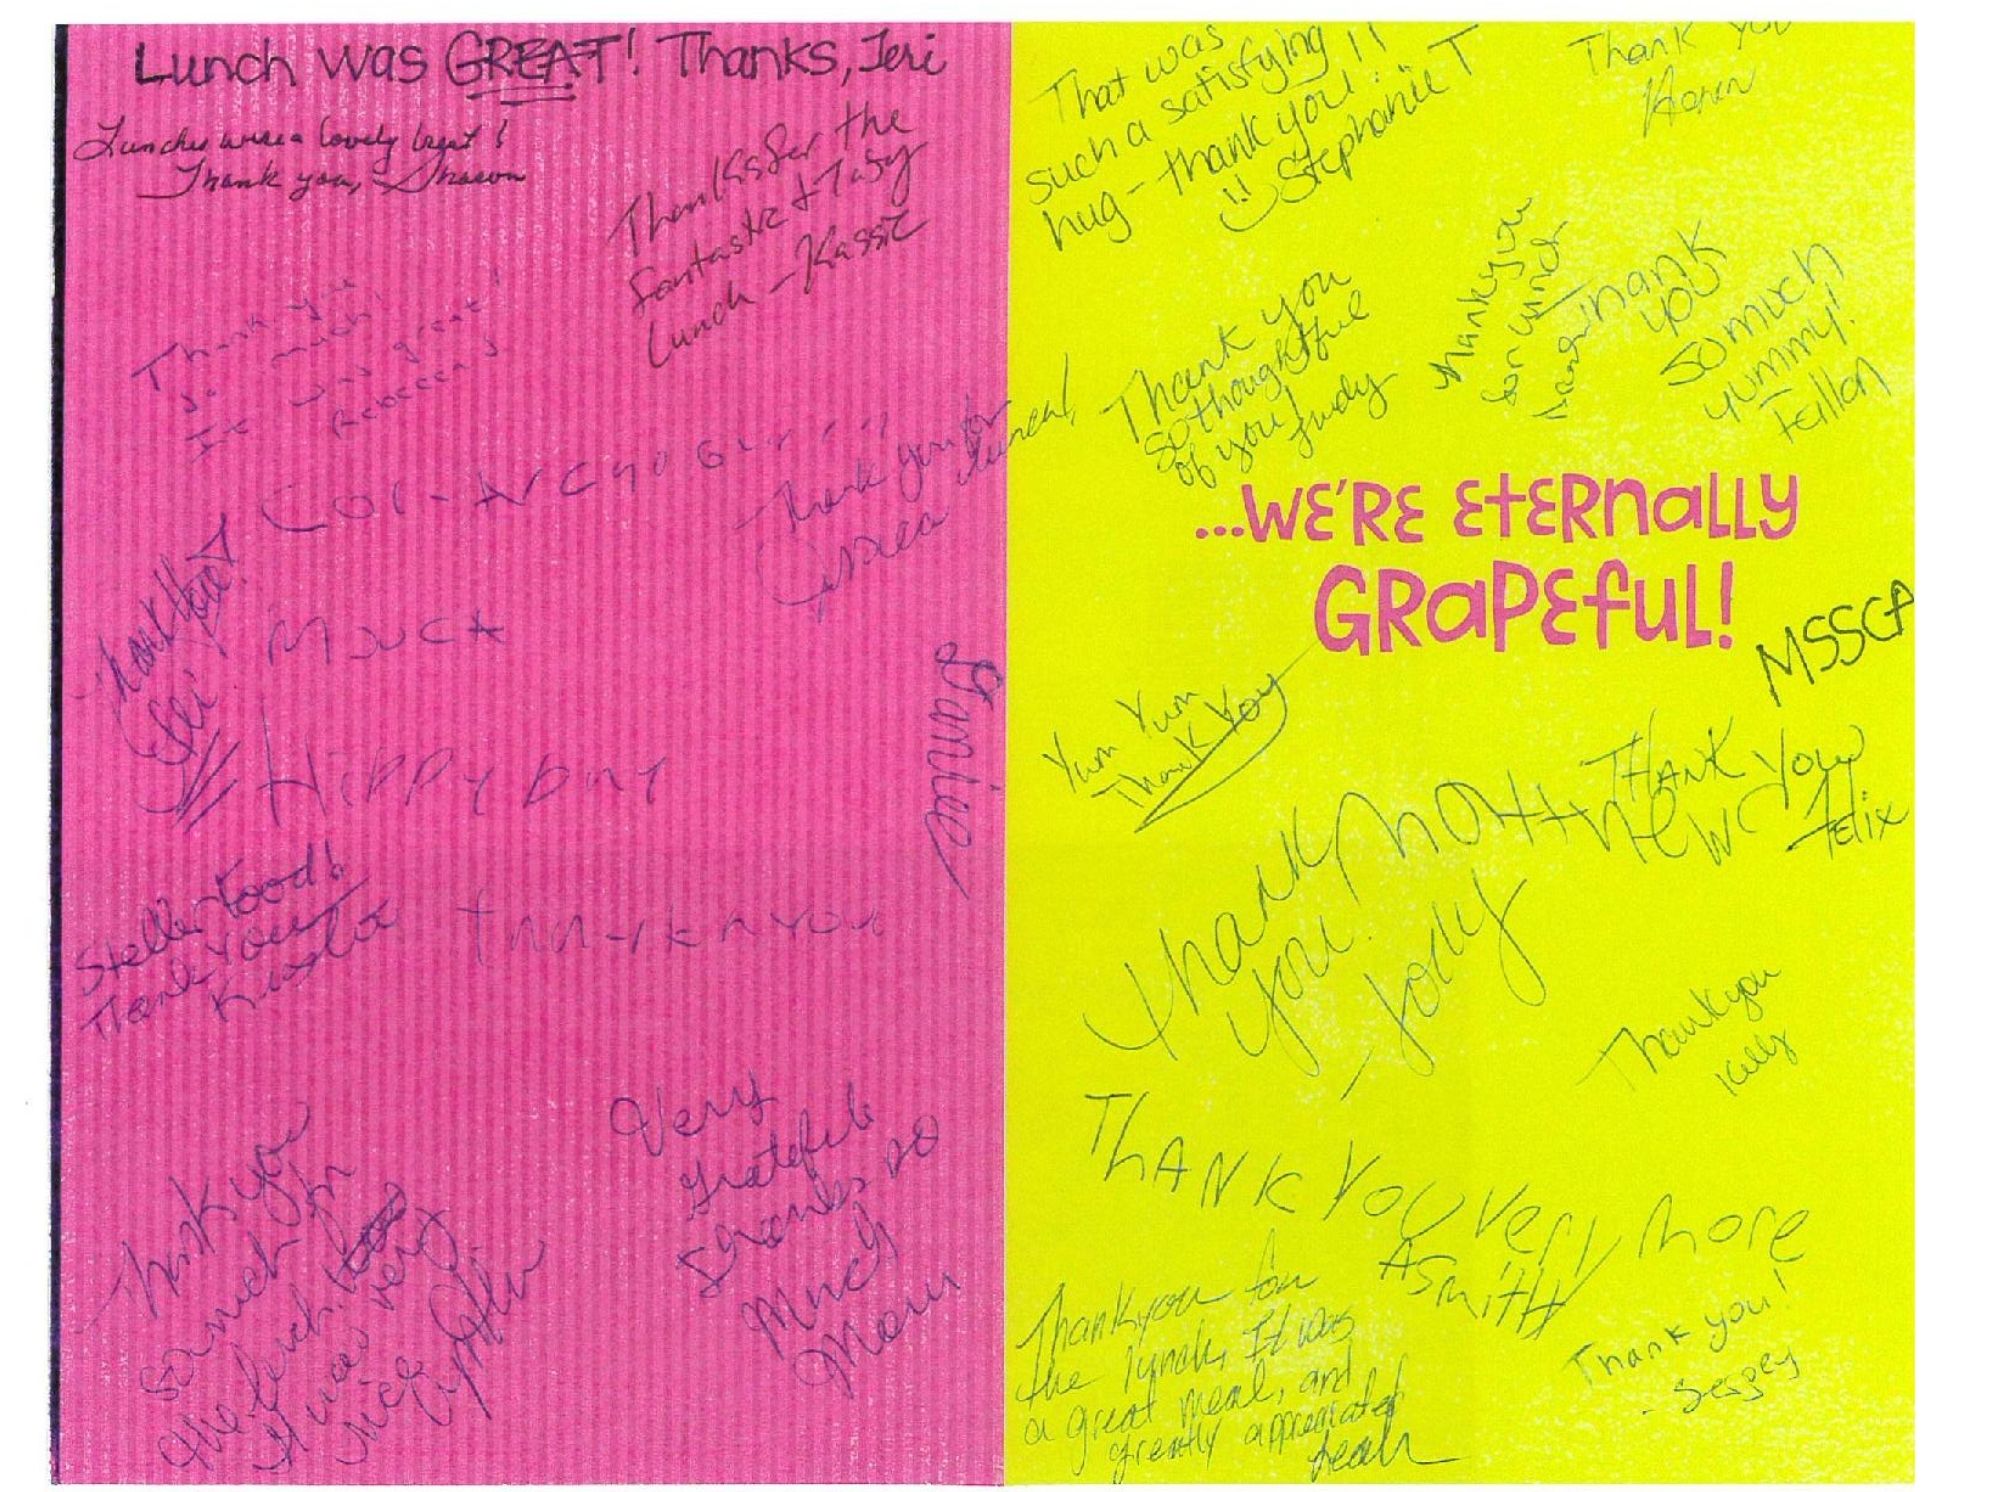 Lunch was GREAT! Thanks, Jeri
Lunches were a lovely treat!
Thank you, Sharon
Thanks for the
fantastic + Tasy
Lunch - Kassie
Thank you
so much!
It was great!
Rebecca
Thank you for
lunch,
Jessica
Thank You!
Eli
Mouca
Hippy Day
Steller Food!
Tank You
Krista
Thank you
so much for
the lunch.
it was very
nice
Very
grateful
thanks so
much
That was
such a satisfying
hug - thank you!!!
Stephanie T
Thank you
Karen
Thank you
so thoughtful
of you!
Judy
Thankyou
for lunch
Thank
you
so much
yummy!
Fallon
...WE'RE ETERNALLY
GRAPEFUL!
MSSCA
Yum Yum
Thank You
THANK You
Felix
Thank
you!
Jolly
Matthew C
Thankyou
Kelly
THANK YOU very more
A Smith
Thankyou for
the lunch, It was
a great meal, and
greatly appreciated
Leah
Thank you!
- Sergey